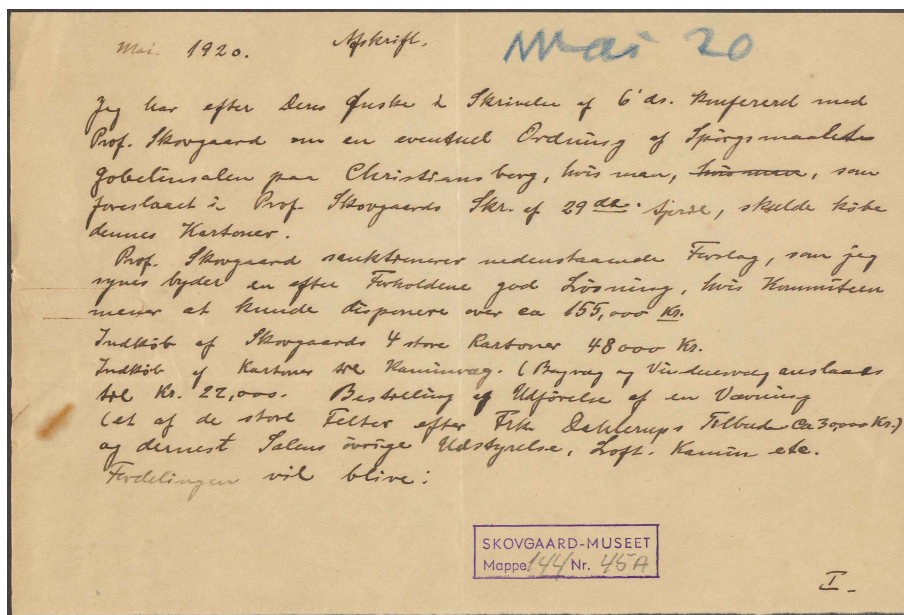 Mai. 1920. Afskrift. Mai 20
Jeg har efter Deres Ønske i Skrivelse af 6' ds. konfereret med
Prof. Skovgaard om en eventuel Ordning af Spørgsmaalet
Gobelinsalen paa Christiansborg, hvis man, hvis man, som
foreslaaet i Prof. Skovgaards Skr. af 29de April, skulde købe
dennes Kartoner.
Prof. Skovgaard sanktionerer nedenstaaende Forslag, som jeg
synes byder en efter Forholdene god Løsning, hvis Kommiteen
mener at kunde disponere over ca 155,000 Kr.
Indkøb af Skovgaards 4 store Kartoner 48000 Kr.
Indkøb af Kartoner til Kaminvæg. (Bagvæg og Vinduesvæg anslaaes
til Kr. 22,000. Bestilling af Udførelse af en Vævning
(et af de store Felter efter Frk Dahlerups Tilbud (Ca 30,000 Kr.)
og dernest Salens øvrige Udstyrelse, Loft. Kamin etc.
Fordelingen vil blive:
SKOVGAARD-MUSEET
Mappe 144 Nr. 45A
I.